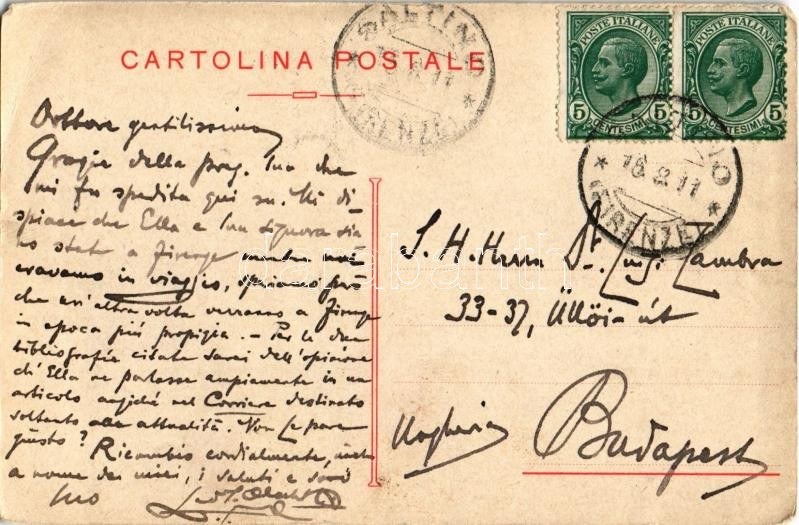 CARTOLINA POSTALE
SALTINO
16.8.11
(FIRENZE)
POSTE ITALIANE
5 CENTESIMI 5
POSTE ITALIANE
5 CENTESIMI 5
SALTINO
16.8.11
(FIRENZE)
Dottore gentilissimo,
Grazie della preg. Sua che
mi fu spedita qui su. Mi di-
spiace che Ella e Sua signora sia-
no state a Firenze mentre noi
eravamo in viaggio, speriamo però
che un'altra volta verranno a Firenze
in epoca più propizia. – Per le due
bibliografie citate sarei dell'opinione
ch'Ella ne parlasse ampiamente in un
articolo anziché nel Corriere destinato
soltanto alla attualità. Non Le pare
giusto? Ricambio cordialmente, anche
a nome dei miei, i saluti e sono
Suo
S. H. Herrn Dr. Luigi Zambra
33-37, Üllői-út
Budapest
Ungheria
darabanth